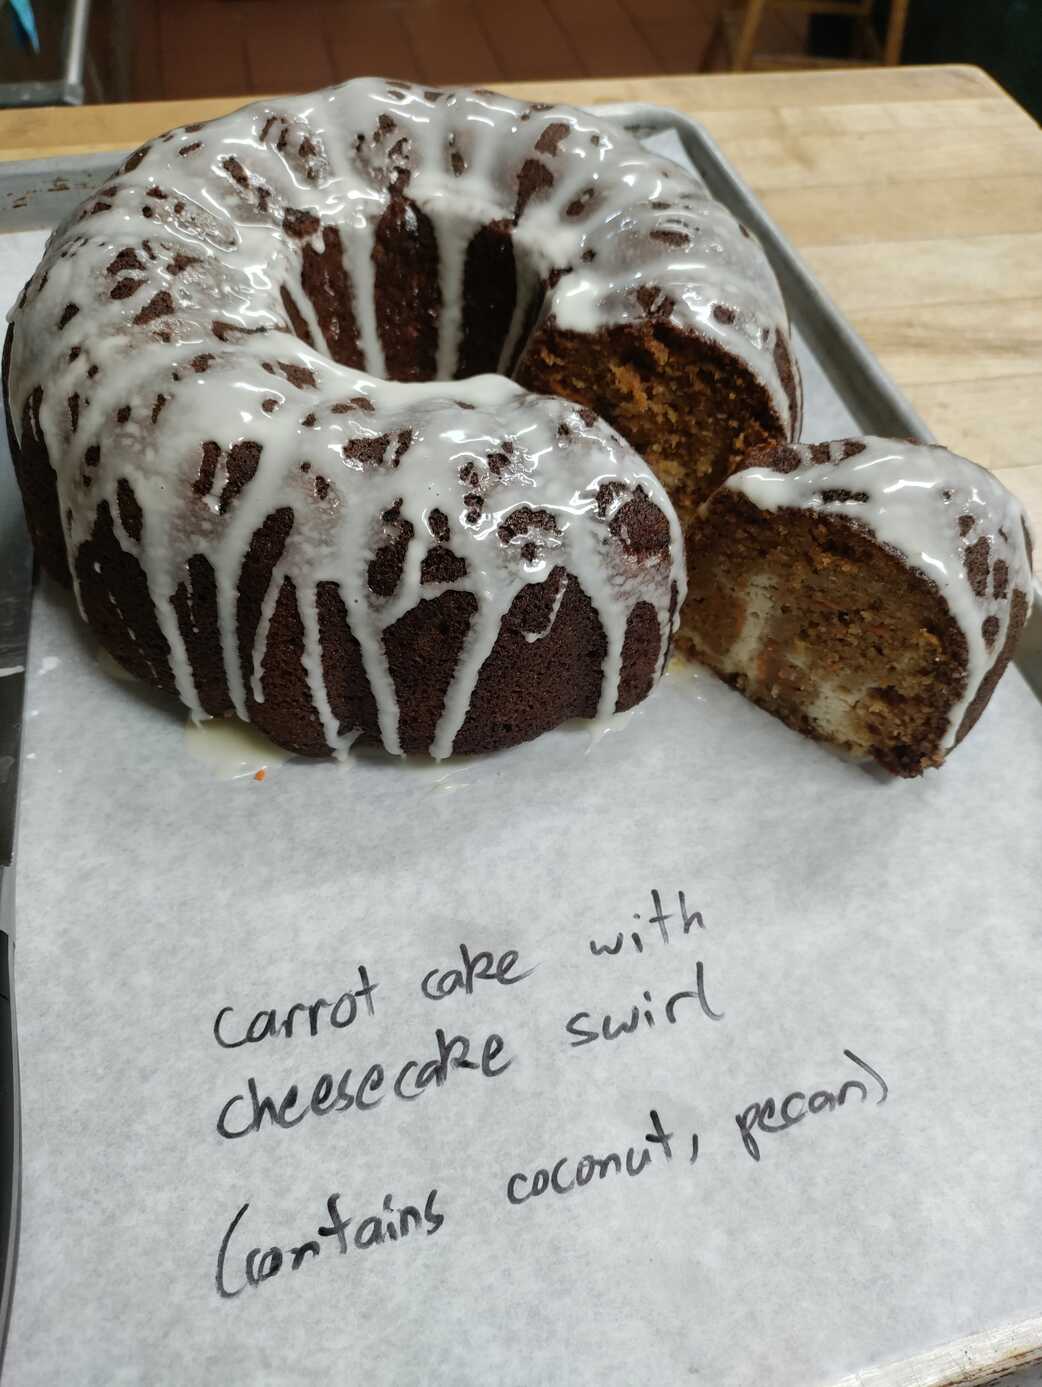 carrot cake with
cheesecake swirl
(contains coconut, pecan)